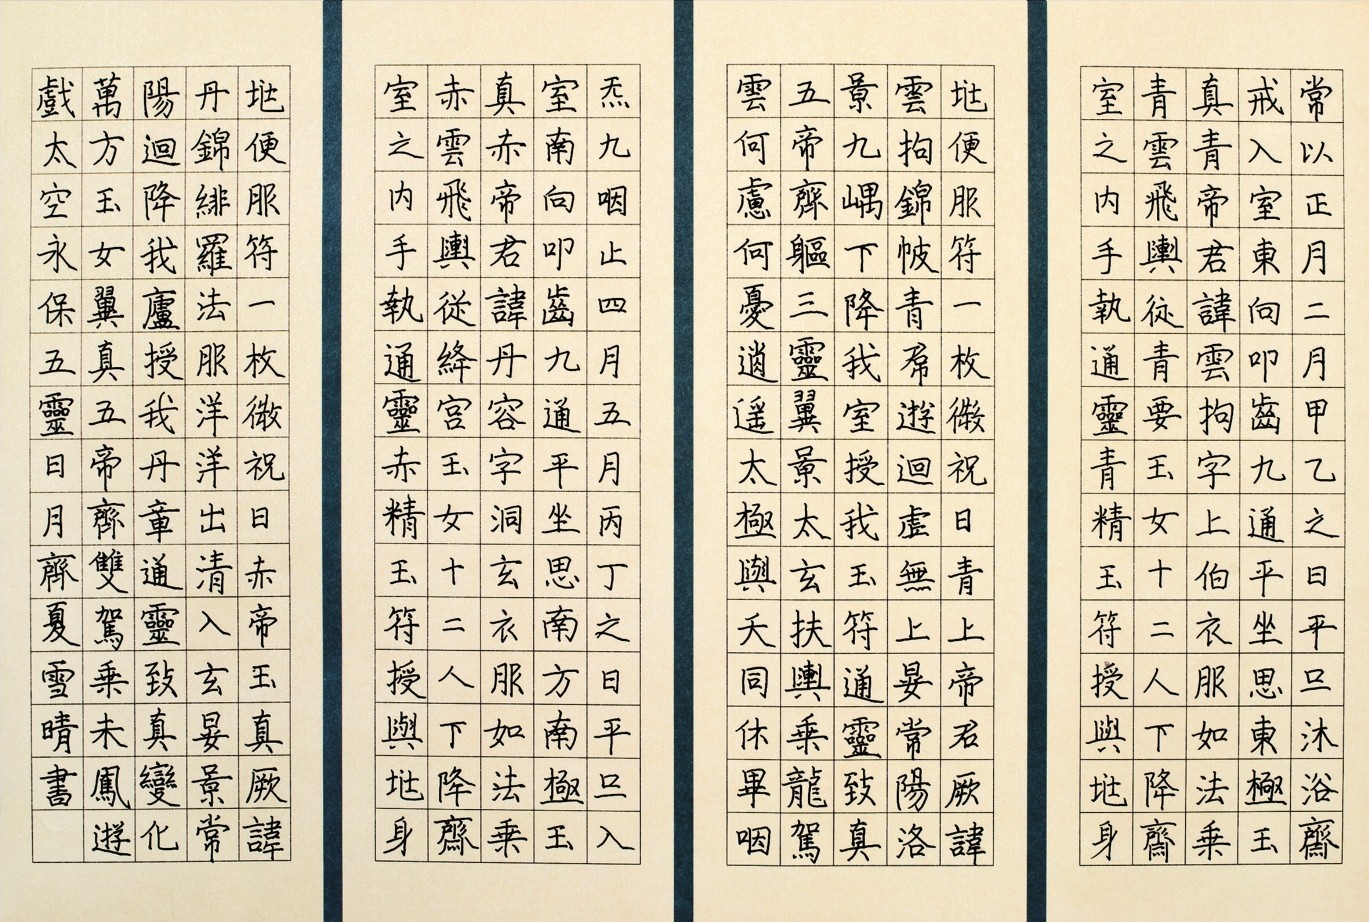 常以正月二月甲乙之日平旦沐浴齋
戒入室東向叩齒九通平坐思東極玉
真青帝君諱雲拘字上伯衣服如法乘
青雲飛輿從青要玉女十二人下降齋
室之内手執通靈青精玉符授與垗身
垗便服符一枚微祝曰青上帝君厥諱
雲拘錦帔青帬遊迴虛無上晏常陽洛
景九嵎下降我室授我玉符通靈致真
五帝齊軀三靈翼景太玄扶輿乘龍駕
雲何慮何憂逍遥太極與天同休畢咽
炁九咽止四月五月丙丁之日平旦入
室南向叩齒九通平坐思南方南極玉
真赤帝君諱丹容字洞玄衣服如法乘
赤雲飛輿從絳宮玉女十二人下降齋
室之内手執通靈赤精玉符授與垗身
垗便服符一枚微祝曰赤帝玉真厥諱
丹錦緋羅法服洋洋出清入玄晏景常
陽迴降我廬授我丹章通靈致真變化
萬方玉女翼真五帝齊雙駕乘朱鳳遊
戲太空永保五靈日月齊夏雪晴書